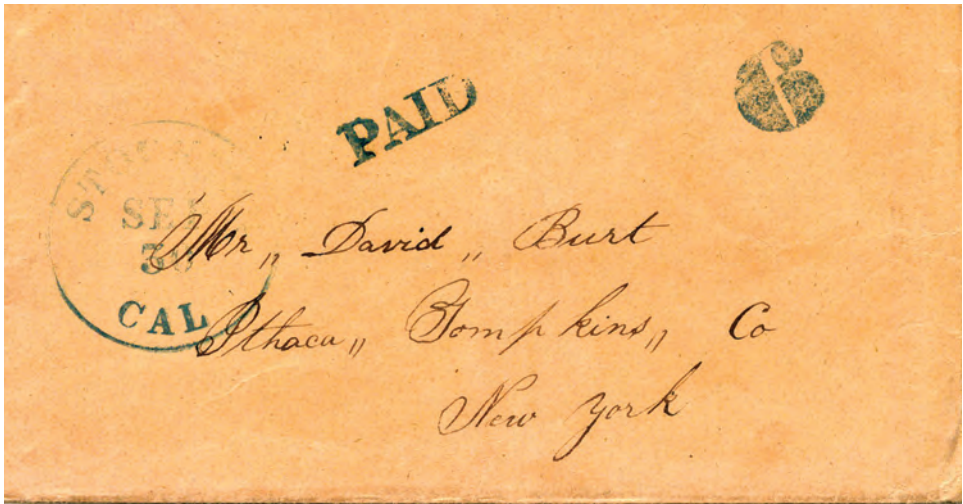 PAID
6
CAL
Mr „ David „ Burt
Ithaca „ Tompkins „ Co
New York